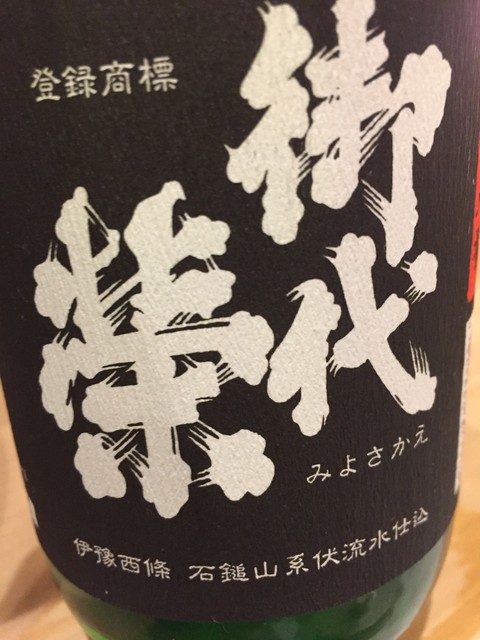 登録商標
御代
榮
みよさかえ
伊豫西條 石鎚山系伏流水仕込